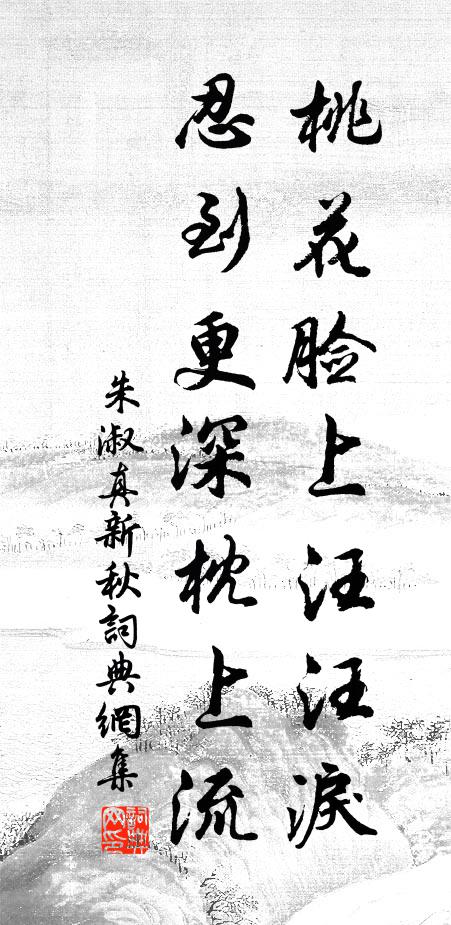 桃花脸上汪汪淚
忍到更深枕上流
朱淑真新秋詞典網集